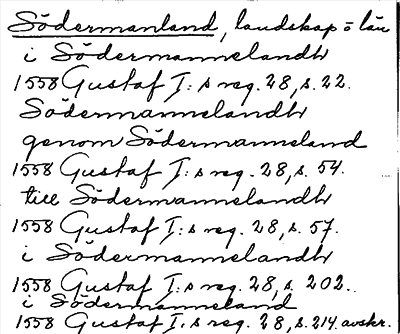 Södermanland, landskap o län
i Södermannelandh
1558 Gustaf I:s reg. 28, s. 22.
Södermannelandh
genom Södermanneland
1558 Gustaf I:s reg. 28, s. 54.
till Södermannelandh
1558 Gustaf I:s reg. 28, s. 57.
i Södermannelandh
1558 Gustaf I:s reg. 28, s. 202.
i Södermanneland
1558 Gustaf I:s reg. 28, s. 214. avskr.